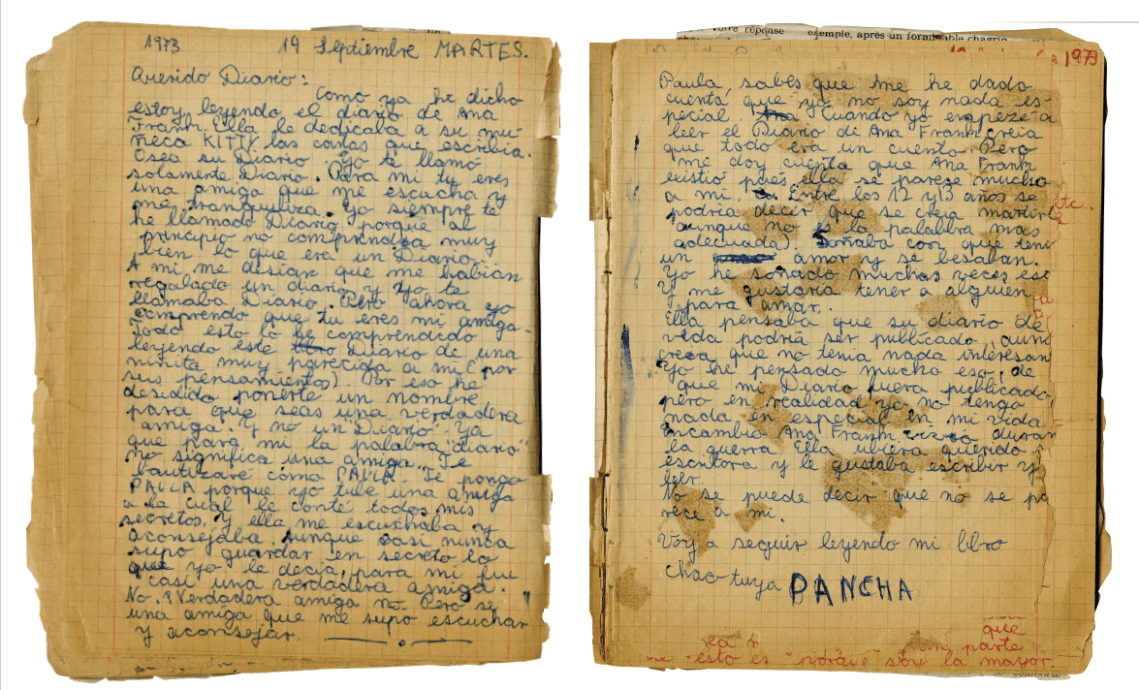 1973 19 Septiembre MARTES.
Querido Diario:
Como ya he dicho
estoy leyendo el diario de Ana
Frank. Ella le dedicaba a su mu-
ñeca KITTY las cartas que escribia.
Osea su Diario. Yo te llamó
solamente Diario. Para mi tu eres
una amiga que me escucha y
me tranquiliza. Yo siempre te
he llamado Diario porque al
principio no comprendia muy
bien lo que era un Diario.
A mi me desian que me habian
regalado un diario y yo te
llamaba Diario. Pero ahora yo
comprendo que tu eres mi amiga.
Todo esto lo he comprendido
leyendo este libro Diario de una
niñita muy parecida a mi (por
sus pensamientos) Por eso he
desidido ponerte un nombre
para que seas una verdadera
amiga. Y no un Diario. Ya
que para mi la palabra "diario"
no significa una amiga. Te
bautizaré como PAULA. Te pongo
PAULA porque yo tube una amiga
a la cual le conté todos mis
secretos. Y ella me escuchaba y
aconsejaba. Aunque casi nunca
supo guardar en secreto lo
que yo le decia, para mi fue
casi una verdadera amiga.
No. Verdadera amiga no. Pero si
una amiga que me supo escuchar
y aconsejar.
votre réponse exemple, après un formidable chagrin
1973
Paula, sabes que me he dado
cuenta que yo no soy nada es-
pecial. Ana Cuando yo empezé a
leer el Diario de Ana Frank creia
que todo era un cuento. Pero
me doy cuenta que Ana Frank
existió pues ella se parese mucho
a mi. Entre los 12 y 13 años se
podria decir que se creia martire
(aunque no es la palabbra mas
adecuada). Soñaba con que teni
un amor y se besaban.
Yo he soñado muchas veces eso
Y me gustaria tener a alguien
para amar.
Ella pensaba que su diario de
vida podria ser publicado, aun
creia que no tenia nada interesan
Yo he pensado mucho eso, de
que mi Diario fuera publicado,
pero en realidad yo no tengo
nada en especial en mi vida
Encambio Ana Frank duran
la guerra. Ella ubiera querido
escritora y le gustaba escribir y
leer.
No se puede decir que no se pa
rece a mi.
Voy a seguir leyendo mi libro
Chao tuya PANCHA
que
parte
esto es soy la mayor.